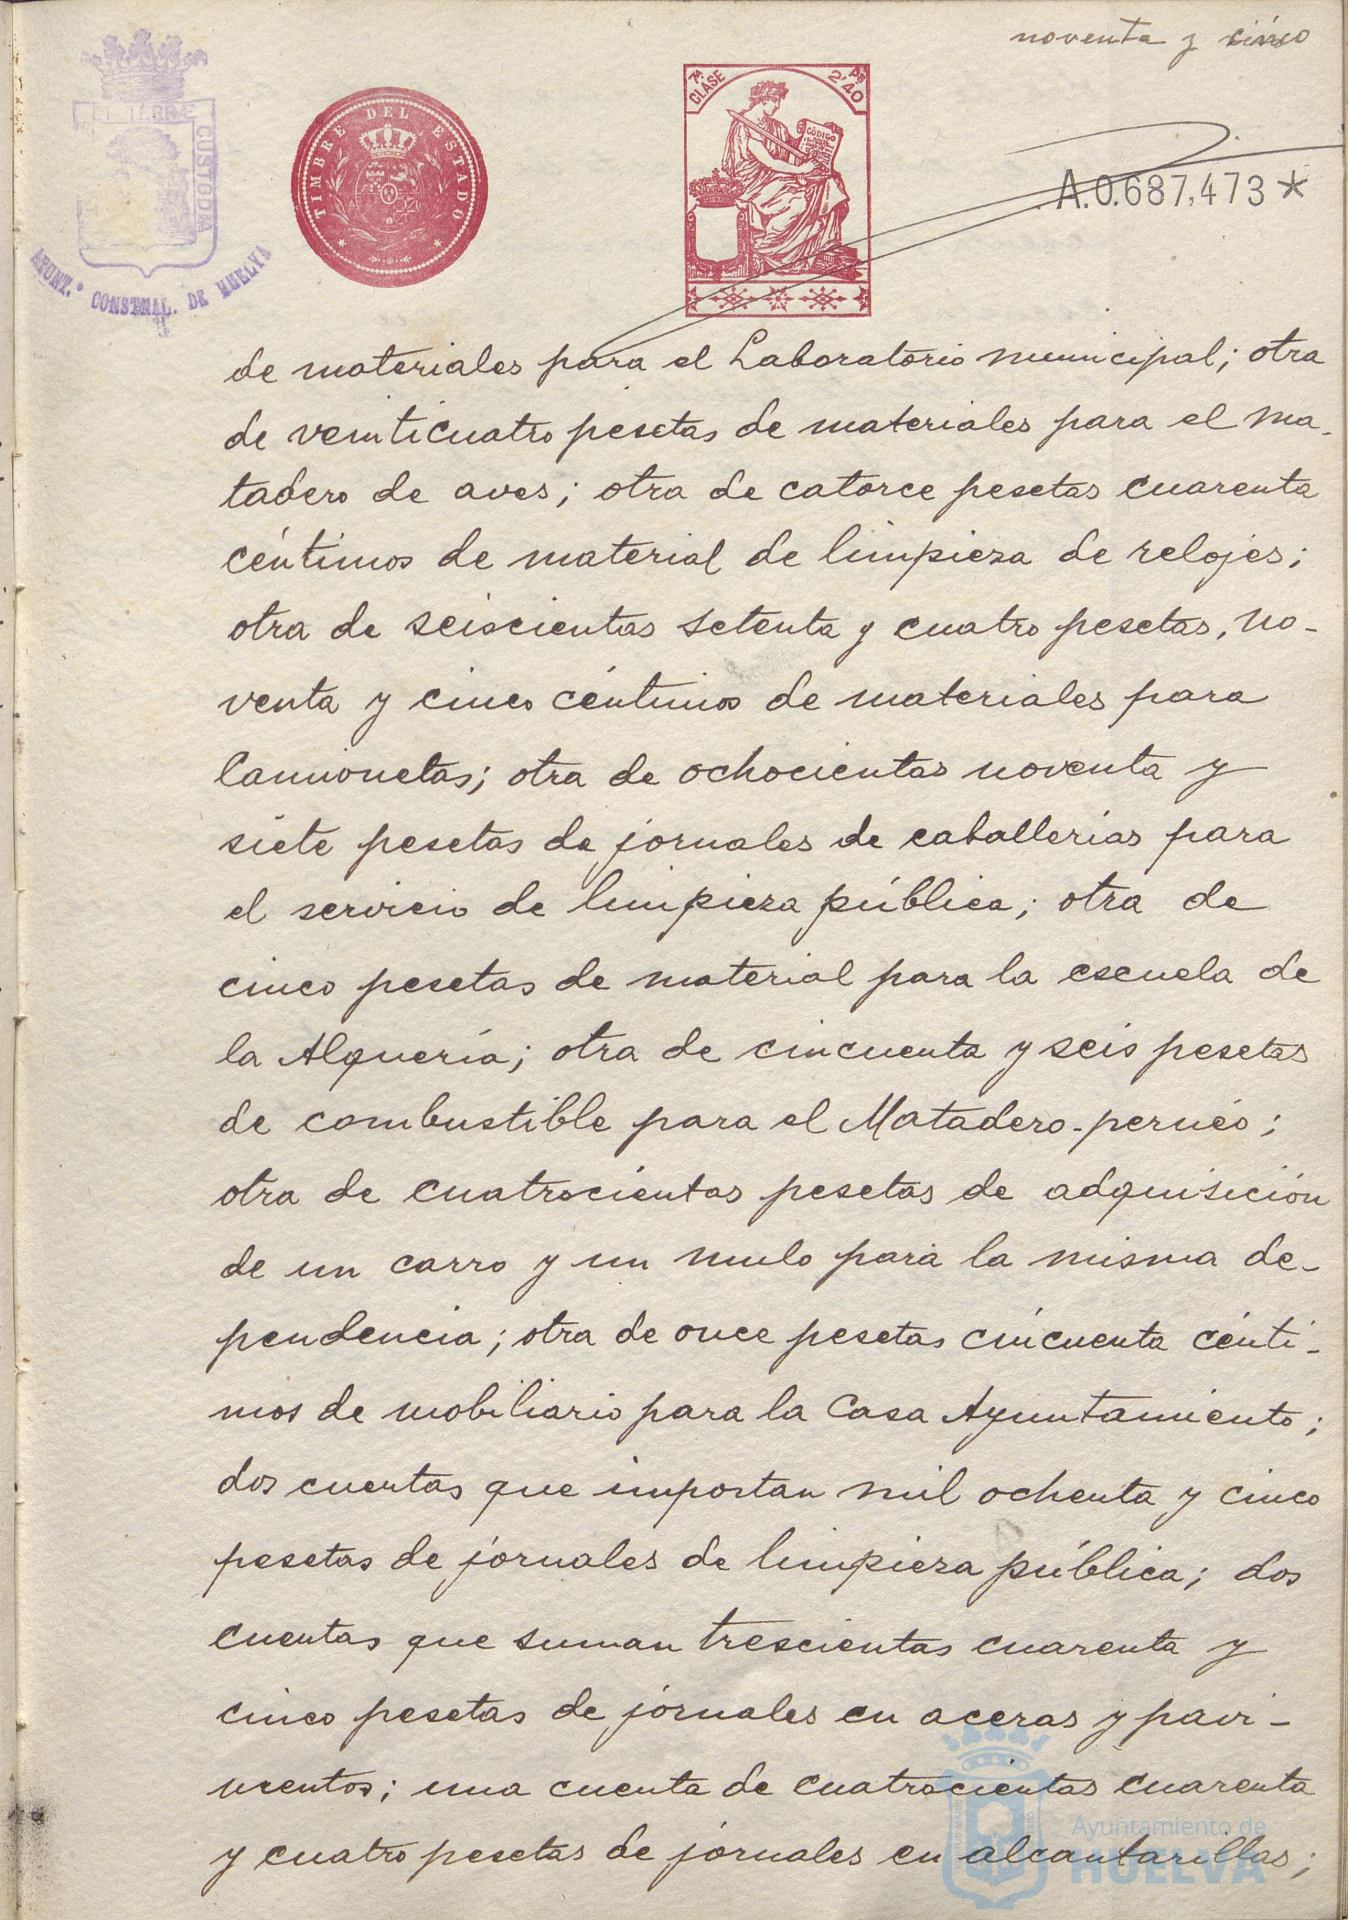 noventa y cinco
PORTUS MARIS ET TERRE CUSTODIA
AYUNT.º CONSTNAL. DE HUELVA
TIMBRE DEL ESTADO
7ª CLASE
Pts 2'40
CÓDIGO
A.0.687,473*
de materiales para el Laboratorio municipal; otra
de veinticuatro pesetas de materiales para el ma-
tadero de aves; otra de catorce pesetas cuarenta
céntimos de material de limpieza de relojes;
otra de seiscientas setenta y cuatro pesetas, no-
venta y cinco céntimos de materiales para
camionetas; otra de ochocientas noventa y
siete pesetas de jornales de caballerías para
el servicio de limpieza pública; otra de
cinco pesetas de material para la escuela de
la Alquería; otra de cincuenta y seis pesetas
de combustible para el Matadero-pernéo;
otra de cuatrocientas pesetas de adquisición
de un carro y un mulo para la misma de-
pendencia; otra de once pesetas cincuenta cénti-
mos de mobiliario para la Casa Ayuntamiento;
dos cuentas que importan mil ochenta y cinco
pesetas de jornales de limpieza pública; dos
cuentas que suman trescientas cuarenta y
cinco pesetas de jornales en aceras y pavi-
mentos; una cuenta de cuatrocientas cuarenta
y cuatro pesetas de jornales en alcantarillas;
Ayuntamiento de
HUELVA